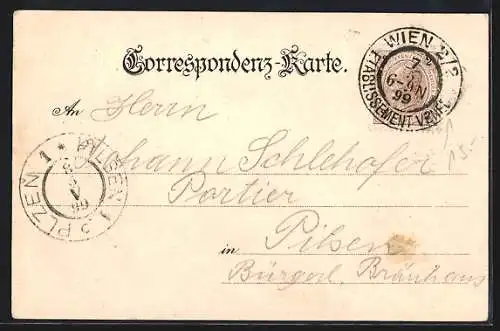 Correspondenz-Karte.
WIEN 2/2
7
6-8N
99
ETABLISSEMENT
An Herrn
Johann Schlehofer
Portier
in Pilsen
Bürgerl. Bräuhaus
PLZEN 1 * PILSEN 1
8
V
99